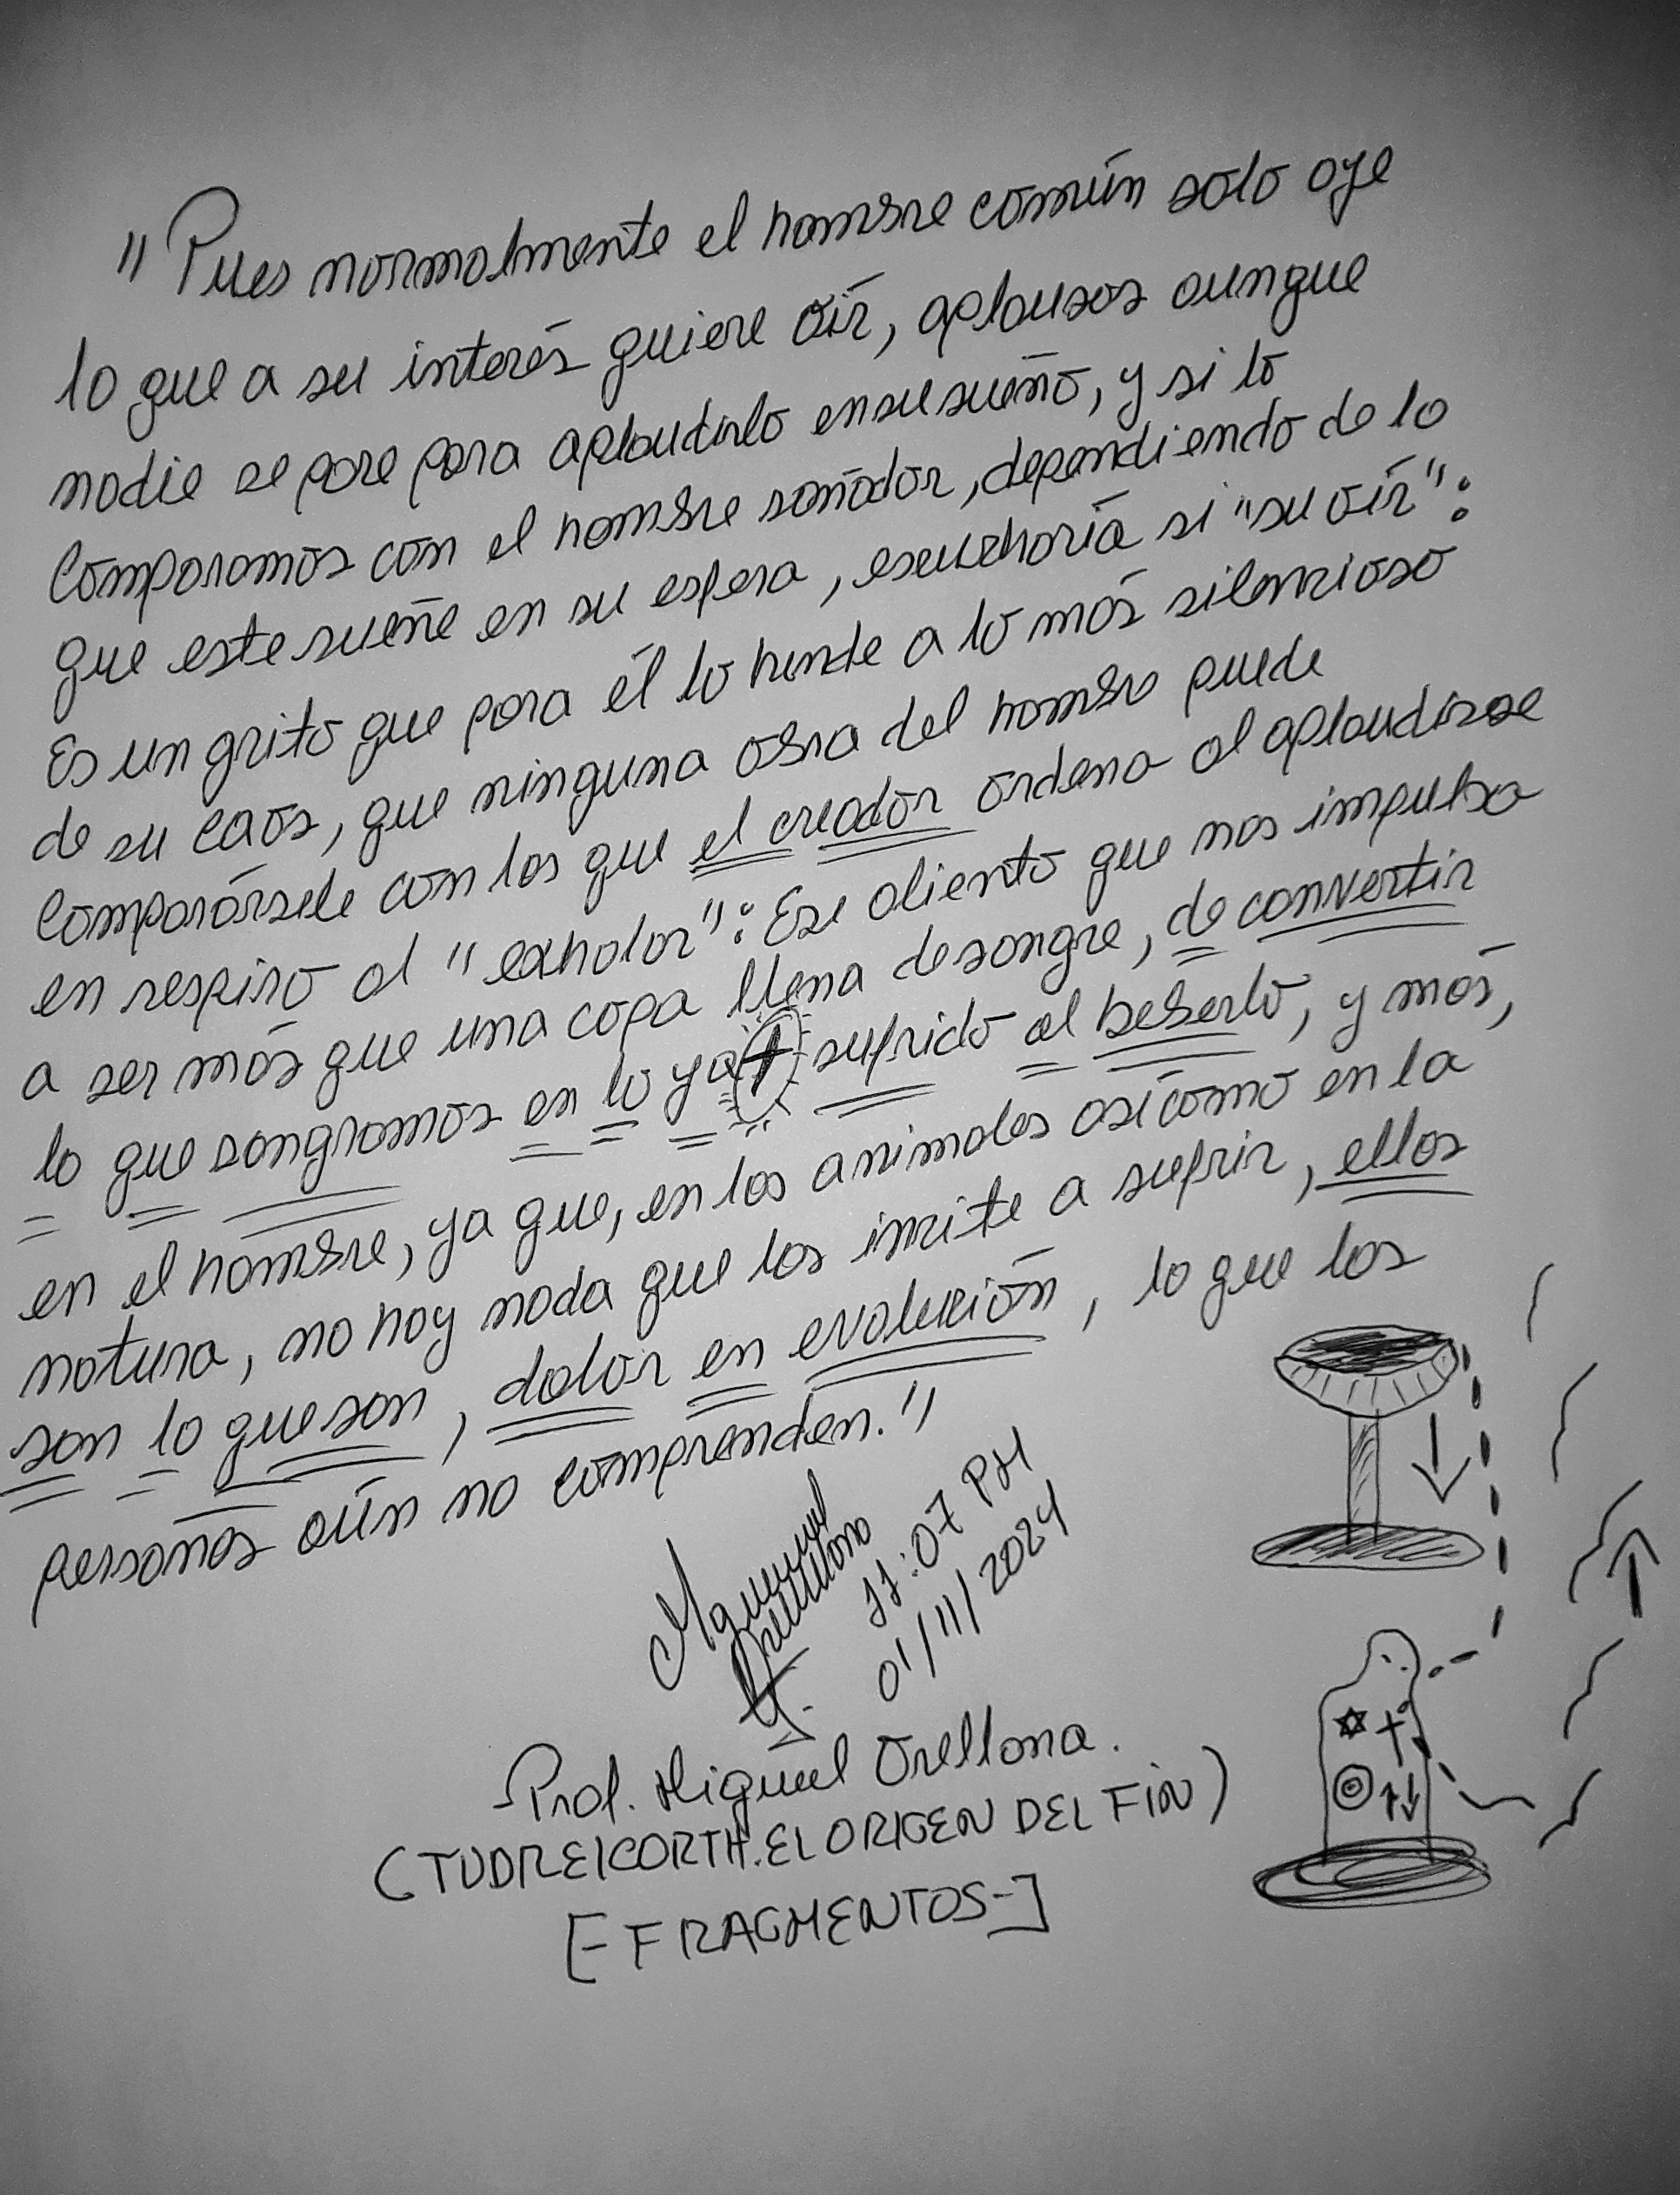 "Pues normalmente el hombre común solo oye
lo que a su interés quiere oír, aplausos aunque
nadie se pare para aplaudirlo en su sueño, y si lo
comparamos con el hombre soñador, dependiendo de lo
que este sueñe en su esfera, escucharía si "su oír":
Es un grito que para él lo hunde a lo más silencioso
de su caos, que ninguna obra del hombre puede
comparársele con los que el creador ordena al aplaudirse
en respiro al "exhalar": Ese aliento que nos impulsa
a ser más que una copa llena de sangre, de convertir
lo que sangramos en lo ya + sufrido al beberlo, y más,
en el hombre, ya que, en los animales así como en la
natura, no hay nada que los incite a sufrir, ellos
son lo que son, dolor en evolución, lo que las
personas aún no comprenden."
Miguel
Orellana
11:07 PM
01/11/2024
-Prof. Miguel Orellana.
(TUDREICORTH. EL ORIGEN DEL FIN)
[-FRAGMENTOS-]